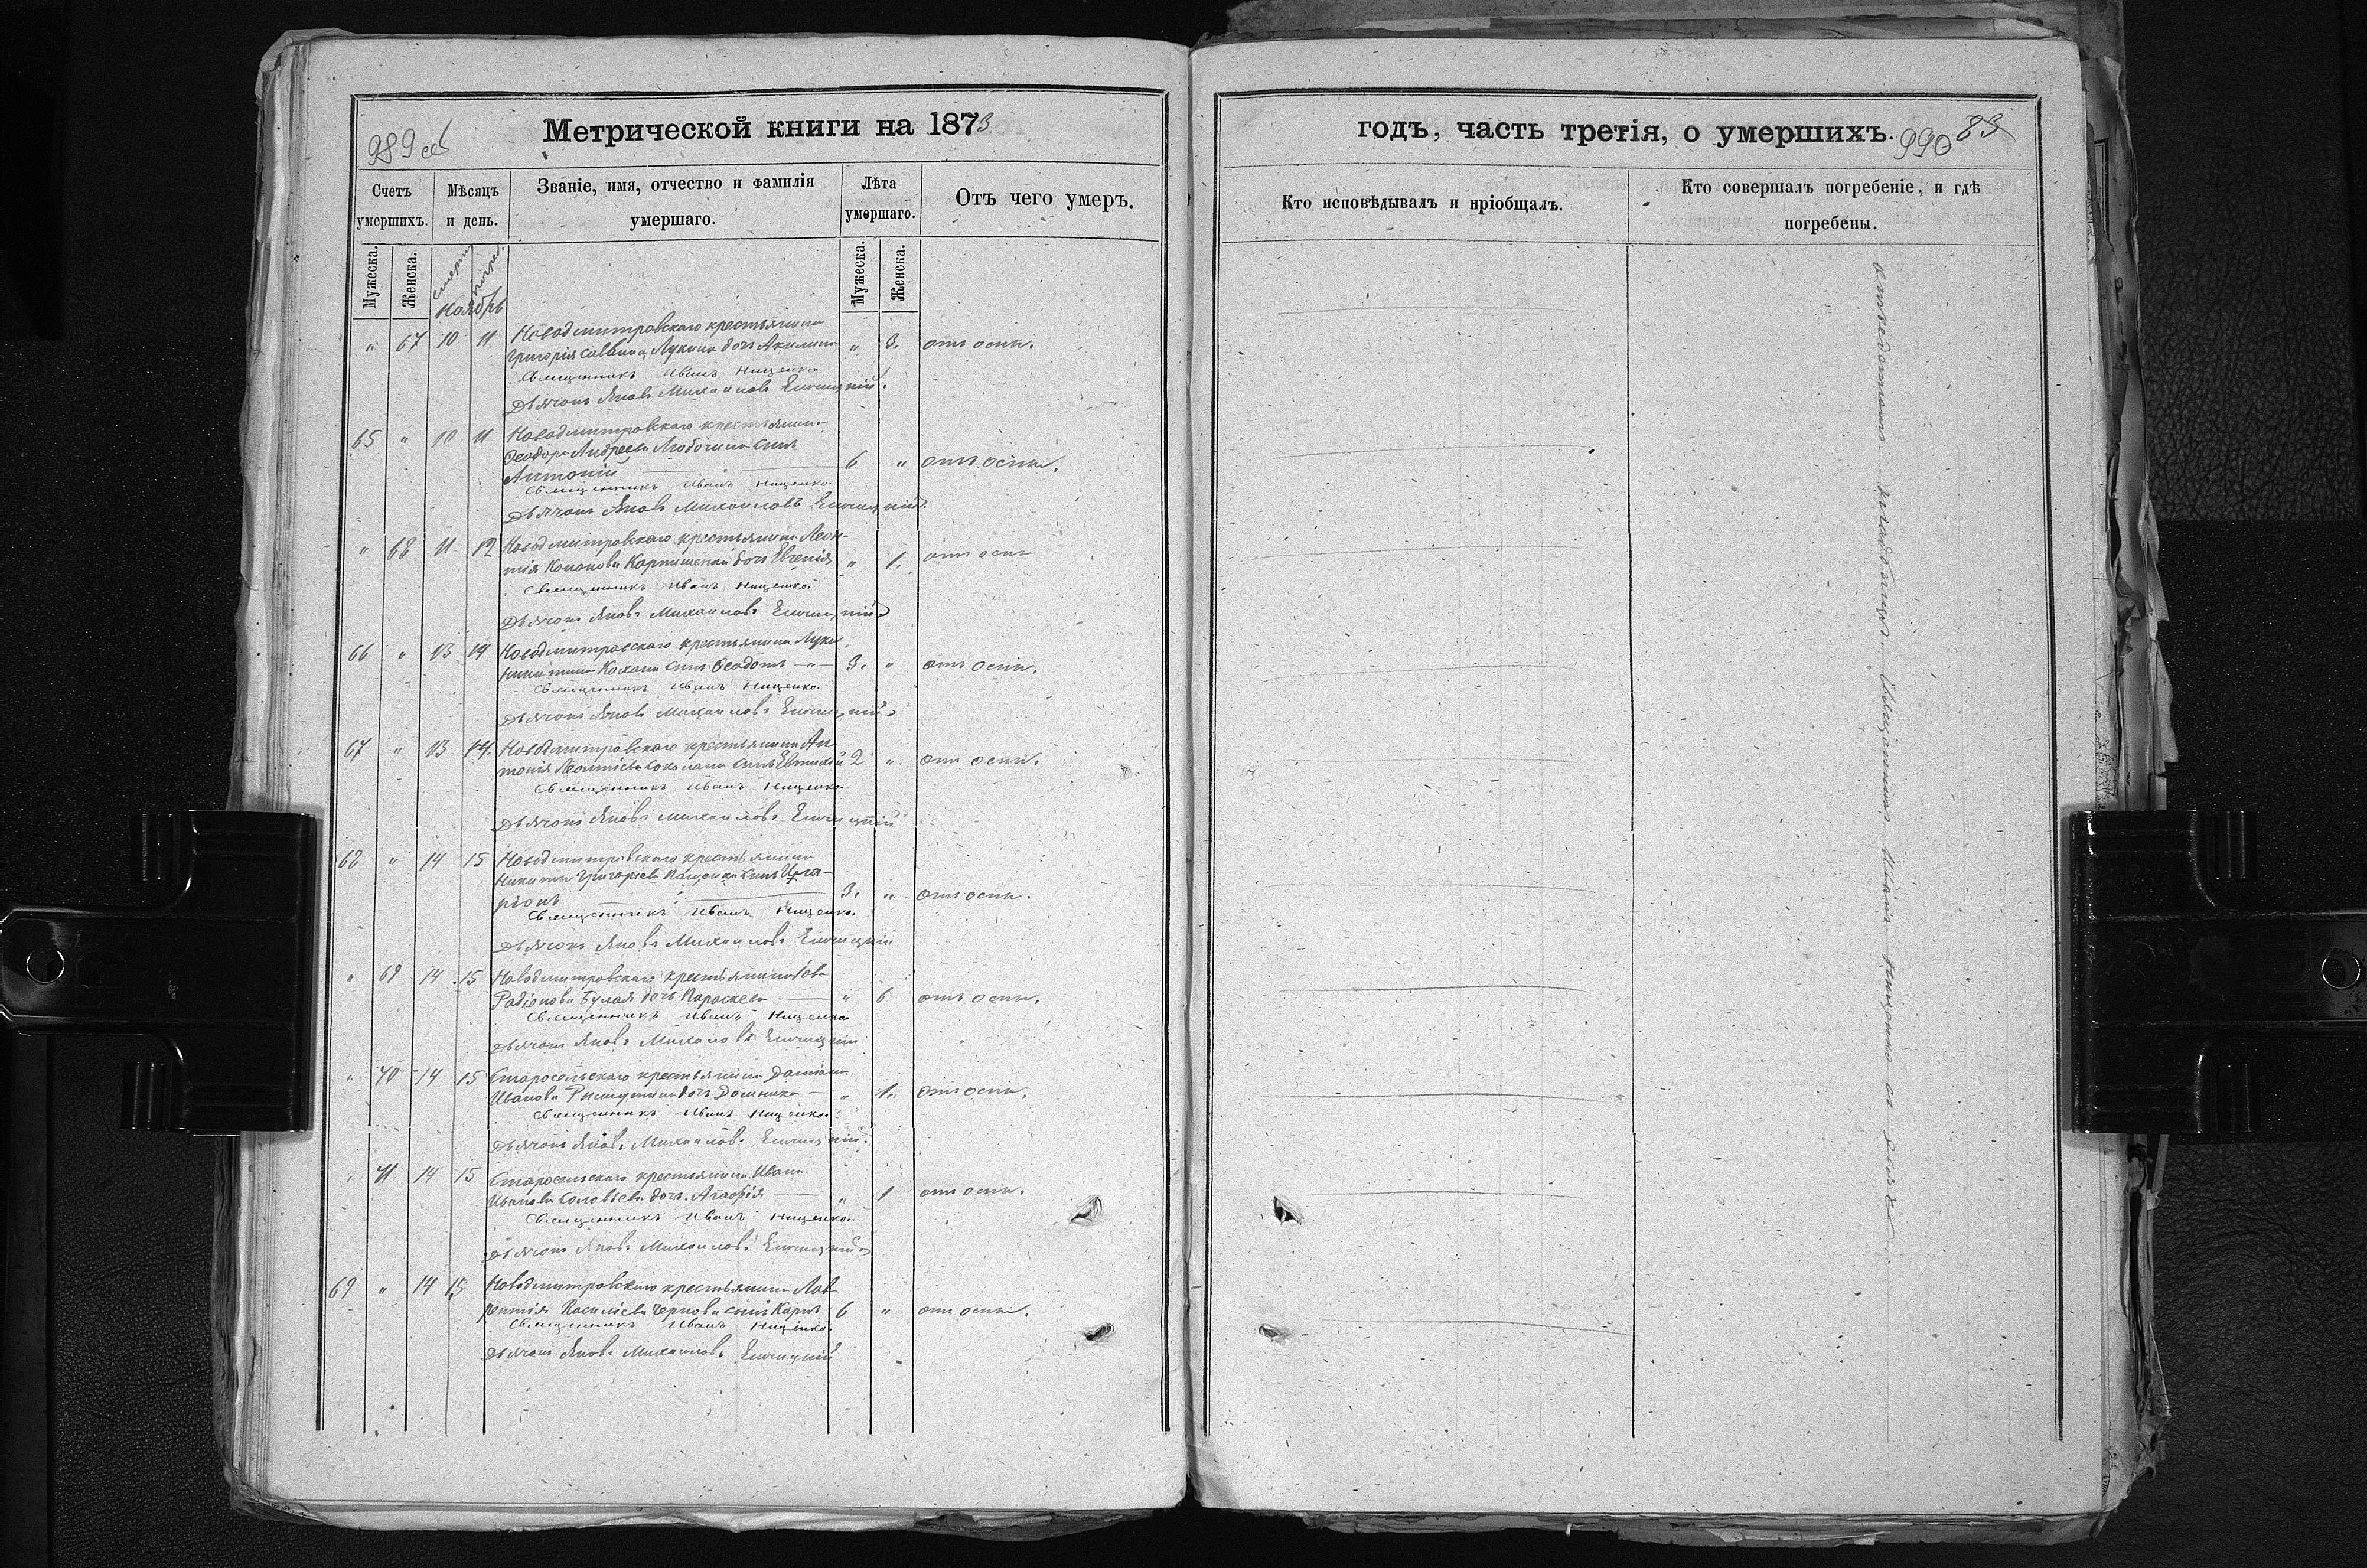 Метрической книги на 1873
989 об
Счетъ умершихъ.
Мѣсяцъ и день.
Званіе, имя, отчество и фамилія умершаго.
Лѣта умершаго.
Отъ чего умеръ.
Мужеска.
Женска.
смерти
погреб.
Ноябрь
Мужеска.
Женска.
" 67 10 11 Новодмитровскаго крестьянина
Григорія Саввина Лукина дочь Акилина " 3. отъ оспы.
Священникъ Иванъ Нищенко
Дьячокъ Яковъ Михаиловъ
65 " 10 11 Новодмитровскаго крестьянина
Ѳеодора Андреева сынъ
Антоній 6 " отъ оспы.
Священникъ Иванъ Нищенко.
Дьячокъ Яковъ Михаиловъ
" 68 11 12 Новодмитровскаго крестьянина Леон-
тія Кононова дочь Евгенія " 1. отъ оспы
Священникъ Иванъ Нищенко.
Дьячокъ Яковъ Михаиловъ
66 " 13 14 Новодмитровскаго крестьянина Луки
Никитина Кохана сынъ Ѳеодотъ 3. " отъ оспы.
Священникъ Иванъ Нищенко.
Дьячокъ Яковъ Михаиловъ
67 " 13 14. Новодмитровскаго крестьянина Ан-
тонія Леонтіева сынъ Евтихій 2 " отъ оспы.
Священникъ Иванъ Нищенко
Дьячокъ Яковъ Михаиловъ
68 " 14 15 Новодмитровскаго крестьянина
Никиты Григоріева сынъ
ріонъ 3. " отъ оспы.
Священникъ Иванъ Нищенко.
Дьячокъ Яковъ Михаиловъ
" 69 14 15 Новодмитровскаго крестьянина Іова
Радіонова Булая дочь Параскева " 6 отъ оспы.
Священникъ Иванъ Нищенко
Дьячокъ Яковъ Михаиловъ
" 70 14 15 Старосельскаго крестьянина Даміана
Иванова дочь Домника " 1. отъ оспы.
Священникъ Иванъ Нищенко.
Дьячокъ Яковъ Михаиловъ
" 71 14 15 Старосельскаго крестьянина Ивана
Иванова Соловьева дочь Агафія " 1 отъ оспы.
Священникъ Иванъ Нищенко.
Дьячокъ Яковъ Михаиловъ
69 " 14 15 Новодмитровскаго крестьянина Лав-
рентія Василіева Чернова сынъ Карпъ 6 " отъ оспы.
Священникъ Иванъ Нищенко.
Дьячокъ Яковъ Михаиловъ
годъ, часть третія, о умершихъ.
990
83
Кто исповѣдывалъ и пріобщалъ.
Кто совершалъ погребеніе, и гдѣ погребены.
кладбищѣ Священникъ Иванъ Нищенко съ